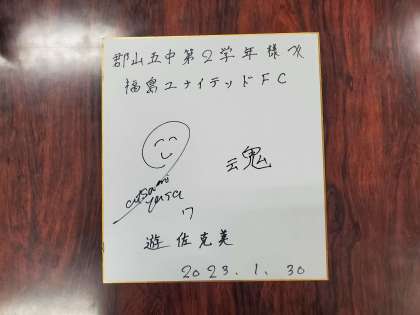 郡山五中第2学年様江
福島ユナイテッドFC
魂
17
遊佐克美
2023.1.30